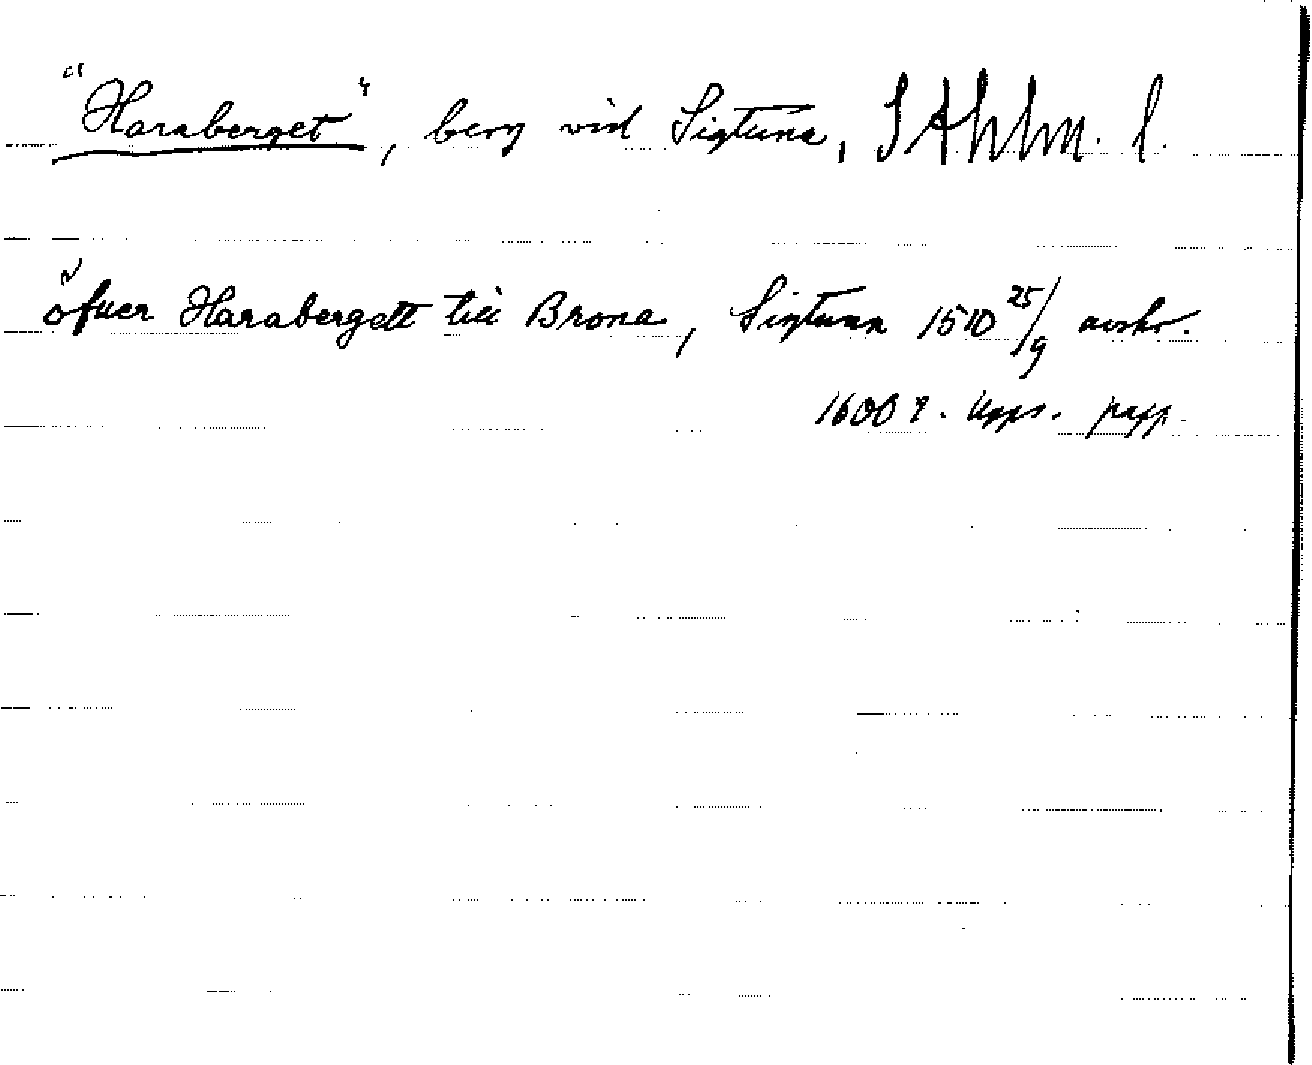 "Haraberget", berg vid Sigtuna, S Ahlm. l.
öfuer Harabergett till Brona, Sigtuna 1510 25/9 avskr.
1600 t. Upps. papp.